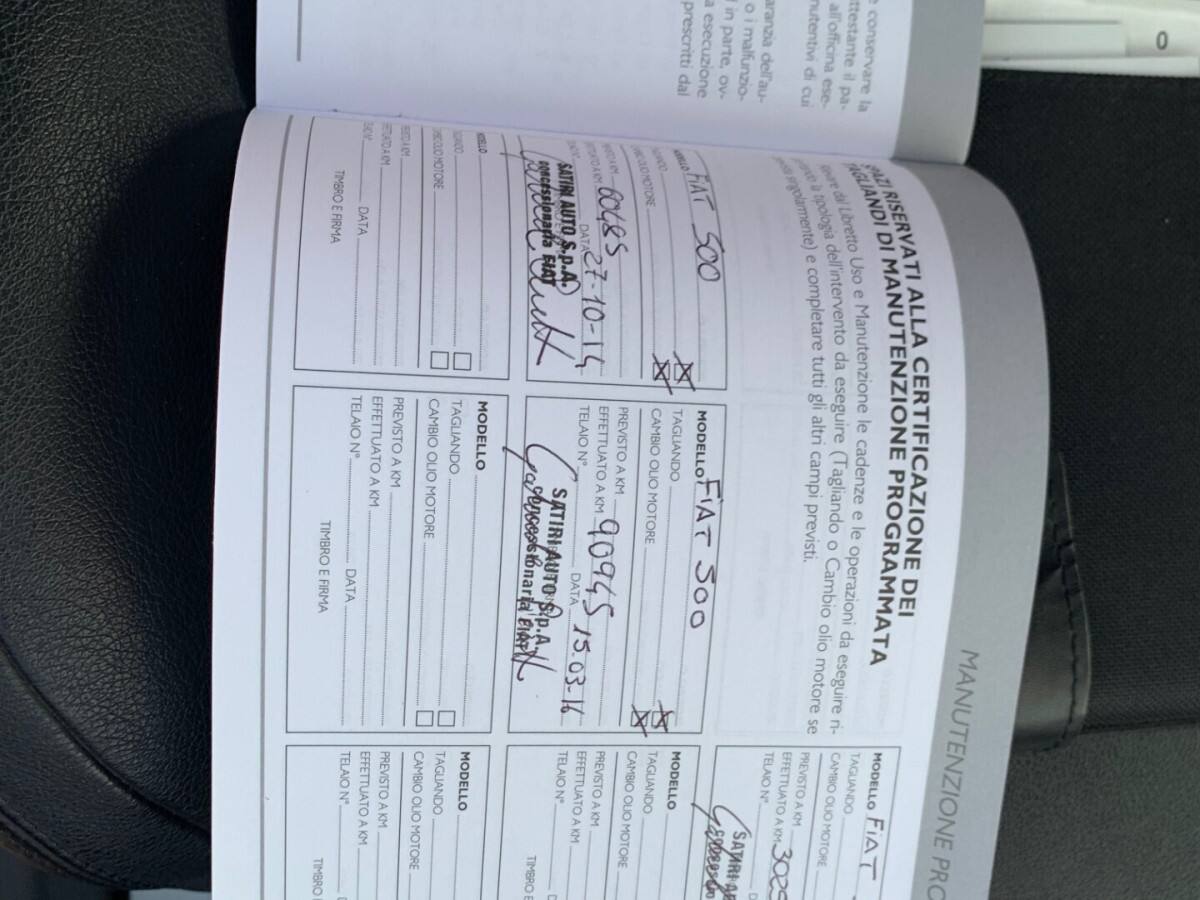 e conservare la
ttestante il pa-
all'officina ese-
nutentivi di cui
aranzia dell'au-
o i malfunzio-
in parte, ov-
a esecuzione
prescritti dal
MANUTENZIONE PRO
AZI RISERVATI ALLA CERTIFICAZIONE DEI
TAGLIANDI DI MANUTENZIONE PROGRAMMATA
dal Libretto Uso e Manutenzione le cadenze e le operazioni da eseguire ri-
la tipologia dell'intervento da eseguire (Tagliando o Cambio olio motore se
singolarmente) e completare tutti gli altri campi previsti.
MODELLO FIAT 500
TAGLIANDO
CAMBIO OLIO MOTORE
EFFETTUATO A KM 60485
DATA 27-10-14
SATIRI AUTO S.p.A.
Concessionaria FIAT
MODELLO FIAT 500
TAGLIANDO
CAMBIO OLIO MOTORE
PREVISTO A KM
EFFETTUATO A KM 90945
TELAIO N° DATA 15.03-16
SATIRI AUTO S.p.A.
Concessionaria FIAT
MODELLO FIAT
TAGLIANDO
CAMBIO OLIO MOTORE
PREVISTO A KM
EFFETTUATO A KM 302
TELAIO N°
SATIRI A
MODELLO
TAGLIANDO
CAMBIO OLIO MOTORE
PREVISTO A KM
EFFETTUATO A KM
DATA
TIMBRO E FIRMA
MODELLO
TAGLIANDO
CAMBIO OLIO MOTORE
PREVISTO A KM
EFFETTUATO A KM
TELAIO N° DATA
TIMBRO E FIRMA
MODELLO
TAGLIANDO
CAMBIO OLIO MOTORE
PREVISTO A KM
EFFETTUATO A KM
TELAIO N°
TIMBRO E F
MODELLO
TAGLIANDO
CAMBIO OLIO MOTORE
PREVISTO A KM
EFFETTUATO A KM
TELAIO N°
TIMBRO E